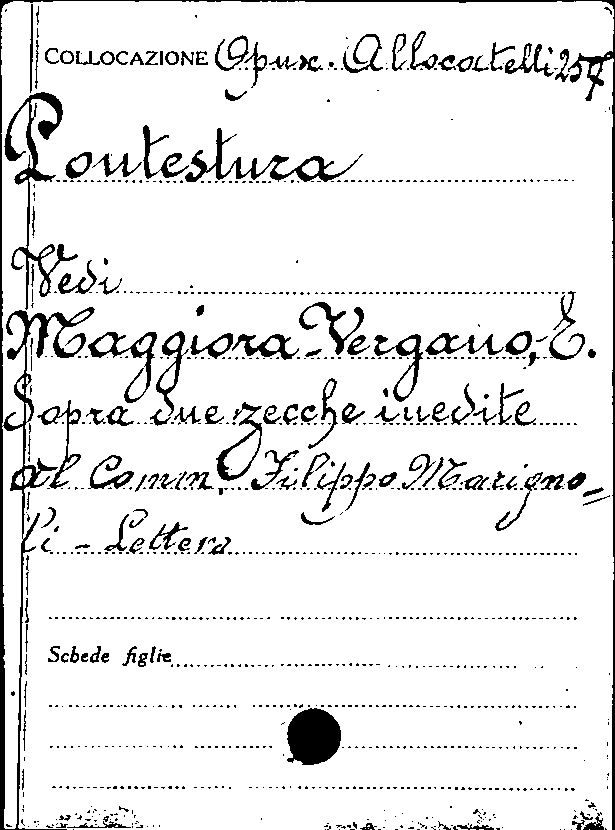 COLLOCAZIONE Opusc. Allocatelli 257
Pontestura
Vedi
Maggiora-Vergano, E.
Sopra due zecche inedite
al Comm. Filippo Marigno=
li - Lettera
Schede figlie